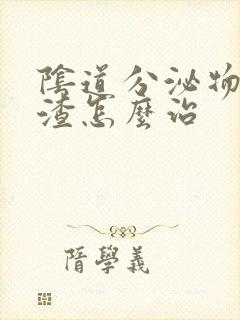 陰道分泌物
渣怎麼治
隋學義